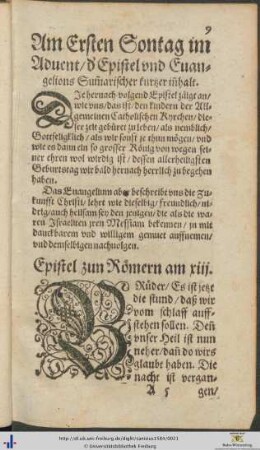 9
Am Ersten Sontag im
Aduent/ d'Epistel vnd Euan-
gelions Sum̃arischer kurtzer in̄halt.
Die hernach volgend Epistel zaigt an/
wie vns/ das ist/ den kindern der All-
gemeinen Catholischen Kyrchen/ die-
ser zeit gebüret zu leben/ als nemblich/
Gottseligklich/ als wir sonst ze thun mögen/ vnd
wie es dann ein so grosser König von wegen sei-
ner ehren wol wirdig ist/ dessen allerheiligsten
Geburtstag wir bald hernach herrlich zu begehen
haben.
Das Euangelium aber beschreibt vns die Zu-
kunfft Christi/ lehrt wie dieselbig/ freundlich/ ni-
drig/ auch heilsam sey den jenigen/ die als die wa-
ren Israeliten jren Messiam bekennen/ jn mit
danckbarem vnd willigem gemüet auffnemen/
vnd demselbigen nachuolgen.
Epistel zum Römern am xiij.
BRüder/ Es ist jetzt
die stund/ daß wir
vom schlaff auff-
stehen sollen. Deñ
vnser Heil ist nun
neher/ dañ do wirs
glaubt haben. Die
nacht ist vergan-
A 5 gen/
http://dl.ub.uni-freiburg.de/diglit/canisius1584/0021
© Universitätsbibliothek Freiburg